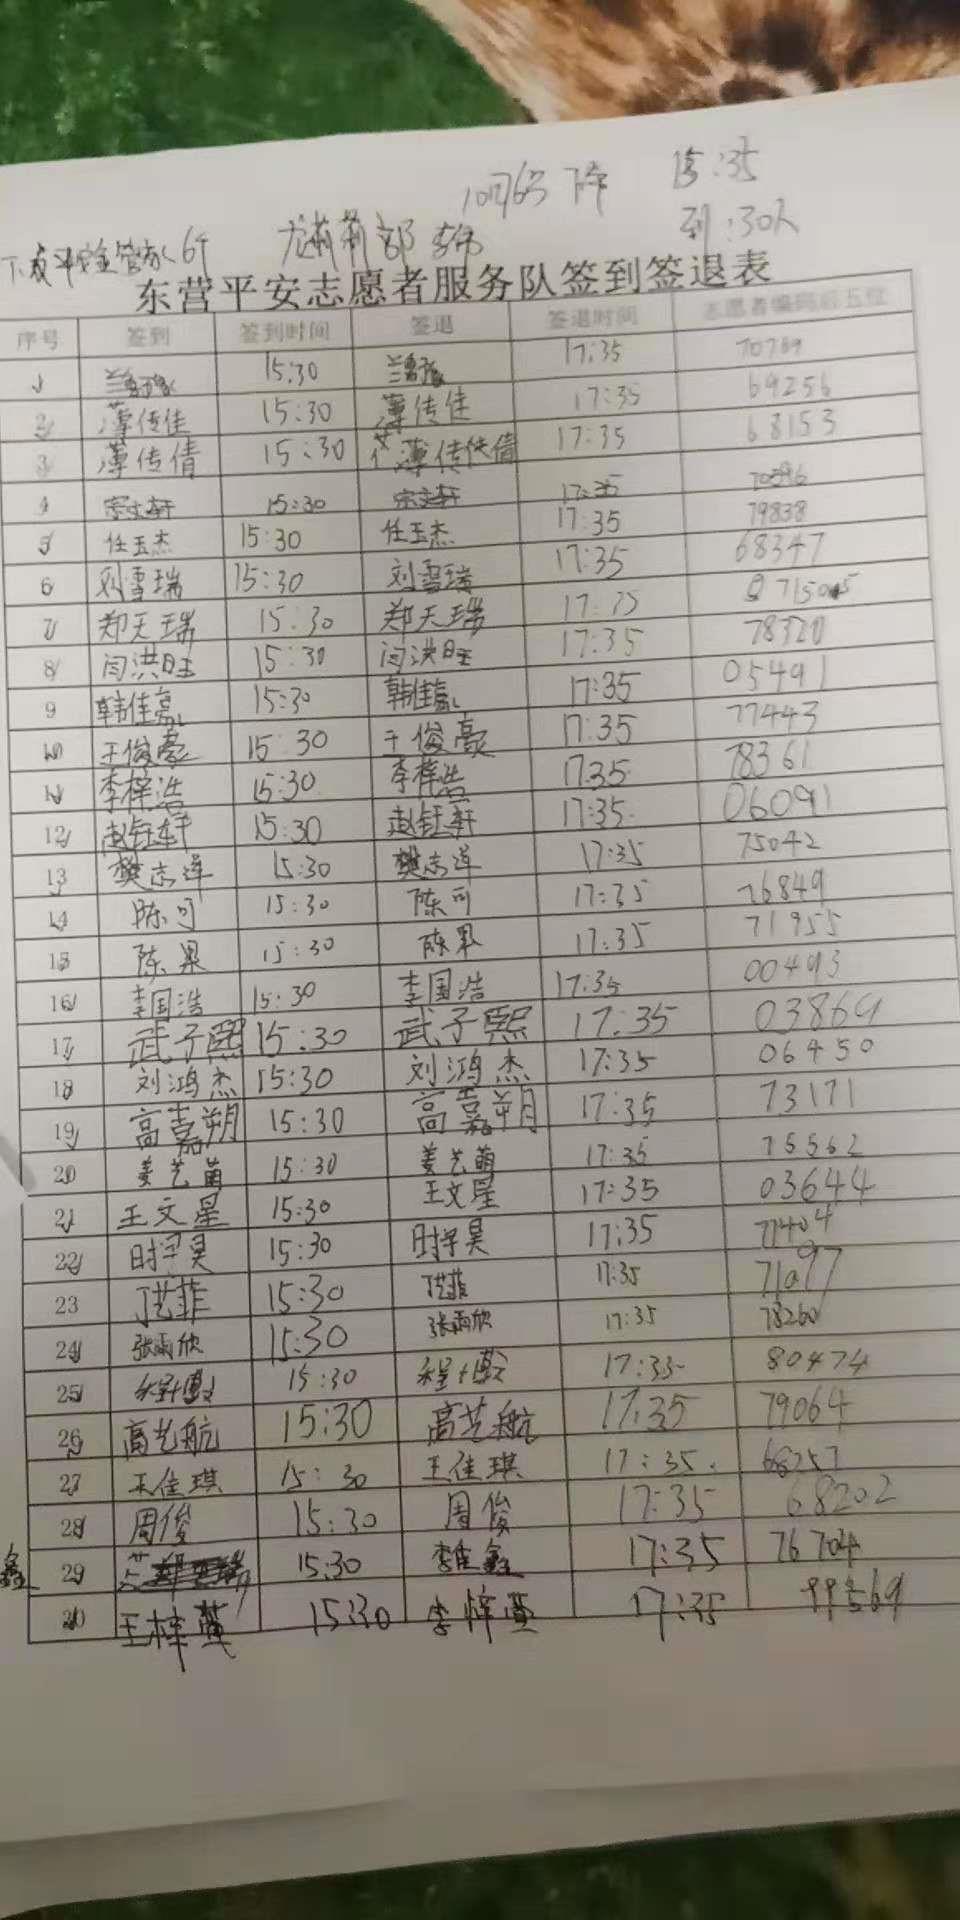 10月6号 下午 15:35
到:30人
东营平安志愿者服务队签到签退表
序号 签到 签到时间 签退 签退时间 志愿者编码后五位
1 15:30 17:35 70769
2 薄传佳 15:30 薄传佳 17:35 69256
3 薄传倩 15:30 薄传倩 17:35 68153
4 宋文轩 15:30 宋文轩 17:35 70596
5 任玉杰 15:30 任玉杰 17:35 79838
6 刘雪瑞 15:30 刘雪瑞 17:35 68347
7 郑天瑞 15:30 郑天瑞 17:35 71505
8 闫洪旺 15:30 闫洪旺 17:35 78320
9 韩佳赢 15:30 韩佳赢 17:35 05491
10 王俊豪 15:30 王俊豪 17:35 77443
11 李梓浩 15:30 李梓浩 17:35 78361
12 赵钰轩 15:30 赵钰轩 17:35 06091
13 樊志泽 15:30 樊志泽 17:35 75042
14 陈可 15:30 陈可 17:35 76849
15 陈果 15:30 陈果 17:35 71955
16 李国浩 15:30 李国浩 17:35 00493
17 武子熙 15:30 武子熙 17:35 03869
18 刘鸿杰 15:30 刘鸿杰 17:35 06450
19 高嘉朔 15:30 高嘉朔 17:35 73171
20 姜艺萌 15:30 姜艺萌 17:35 75562
21 王文星 15:30 王文星 17:35 03644
22 时宇昊 15:30 时宇昊 17:35 77404
23 15:30 17:35 71097
24 张雨欣 15:30 张雨欣 17:35 78260
25 15:30 17:35 80474
26 高艺航 15:30 高艺航 17:35 79064
27 王佳琪 15:30 王佳琪 17:35 68257
28 周俊 15:30 周俊 17:35 68202
鑫 29 15:30 李佳鑫 17:35 76704
30 15:30 17:35 99569